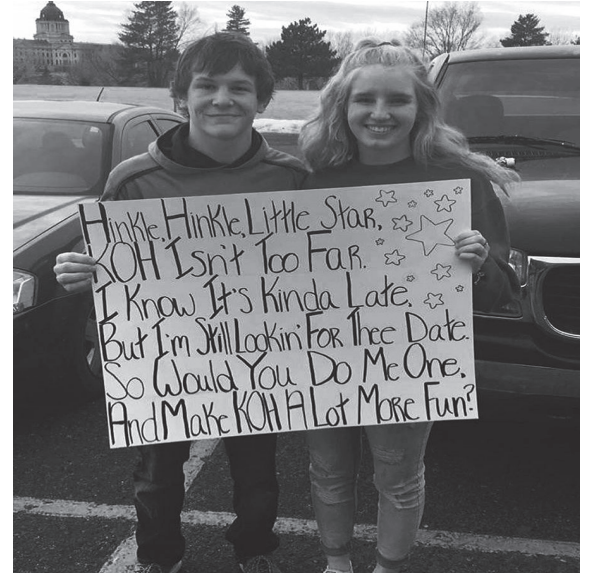 Hinkle, Hinkle, Little Star,
KOH Isn't Too Far.
I Know It's Kinda Late,
But I'm Still Lookin' For Thee Date.
So Would You Do Me One,
And Make KOH A Lot More Fun?